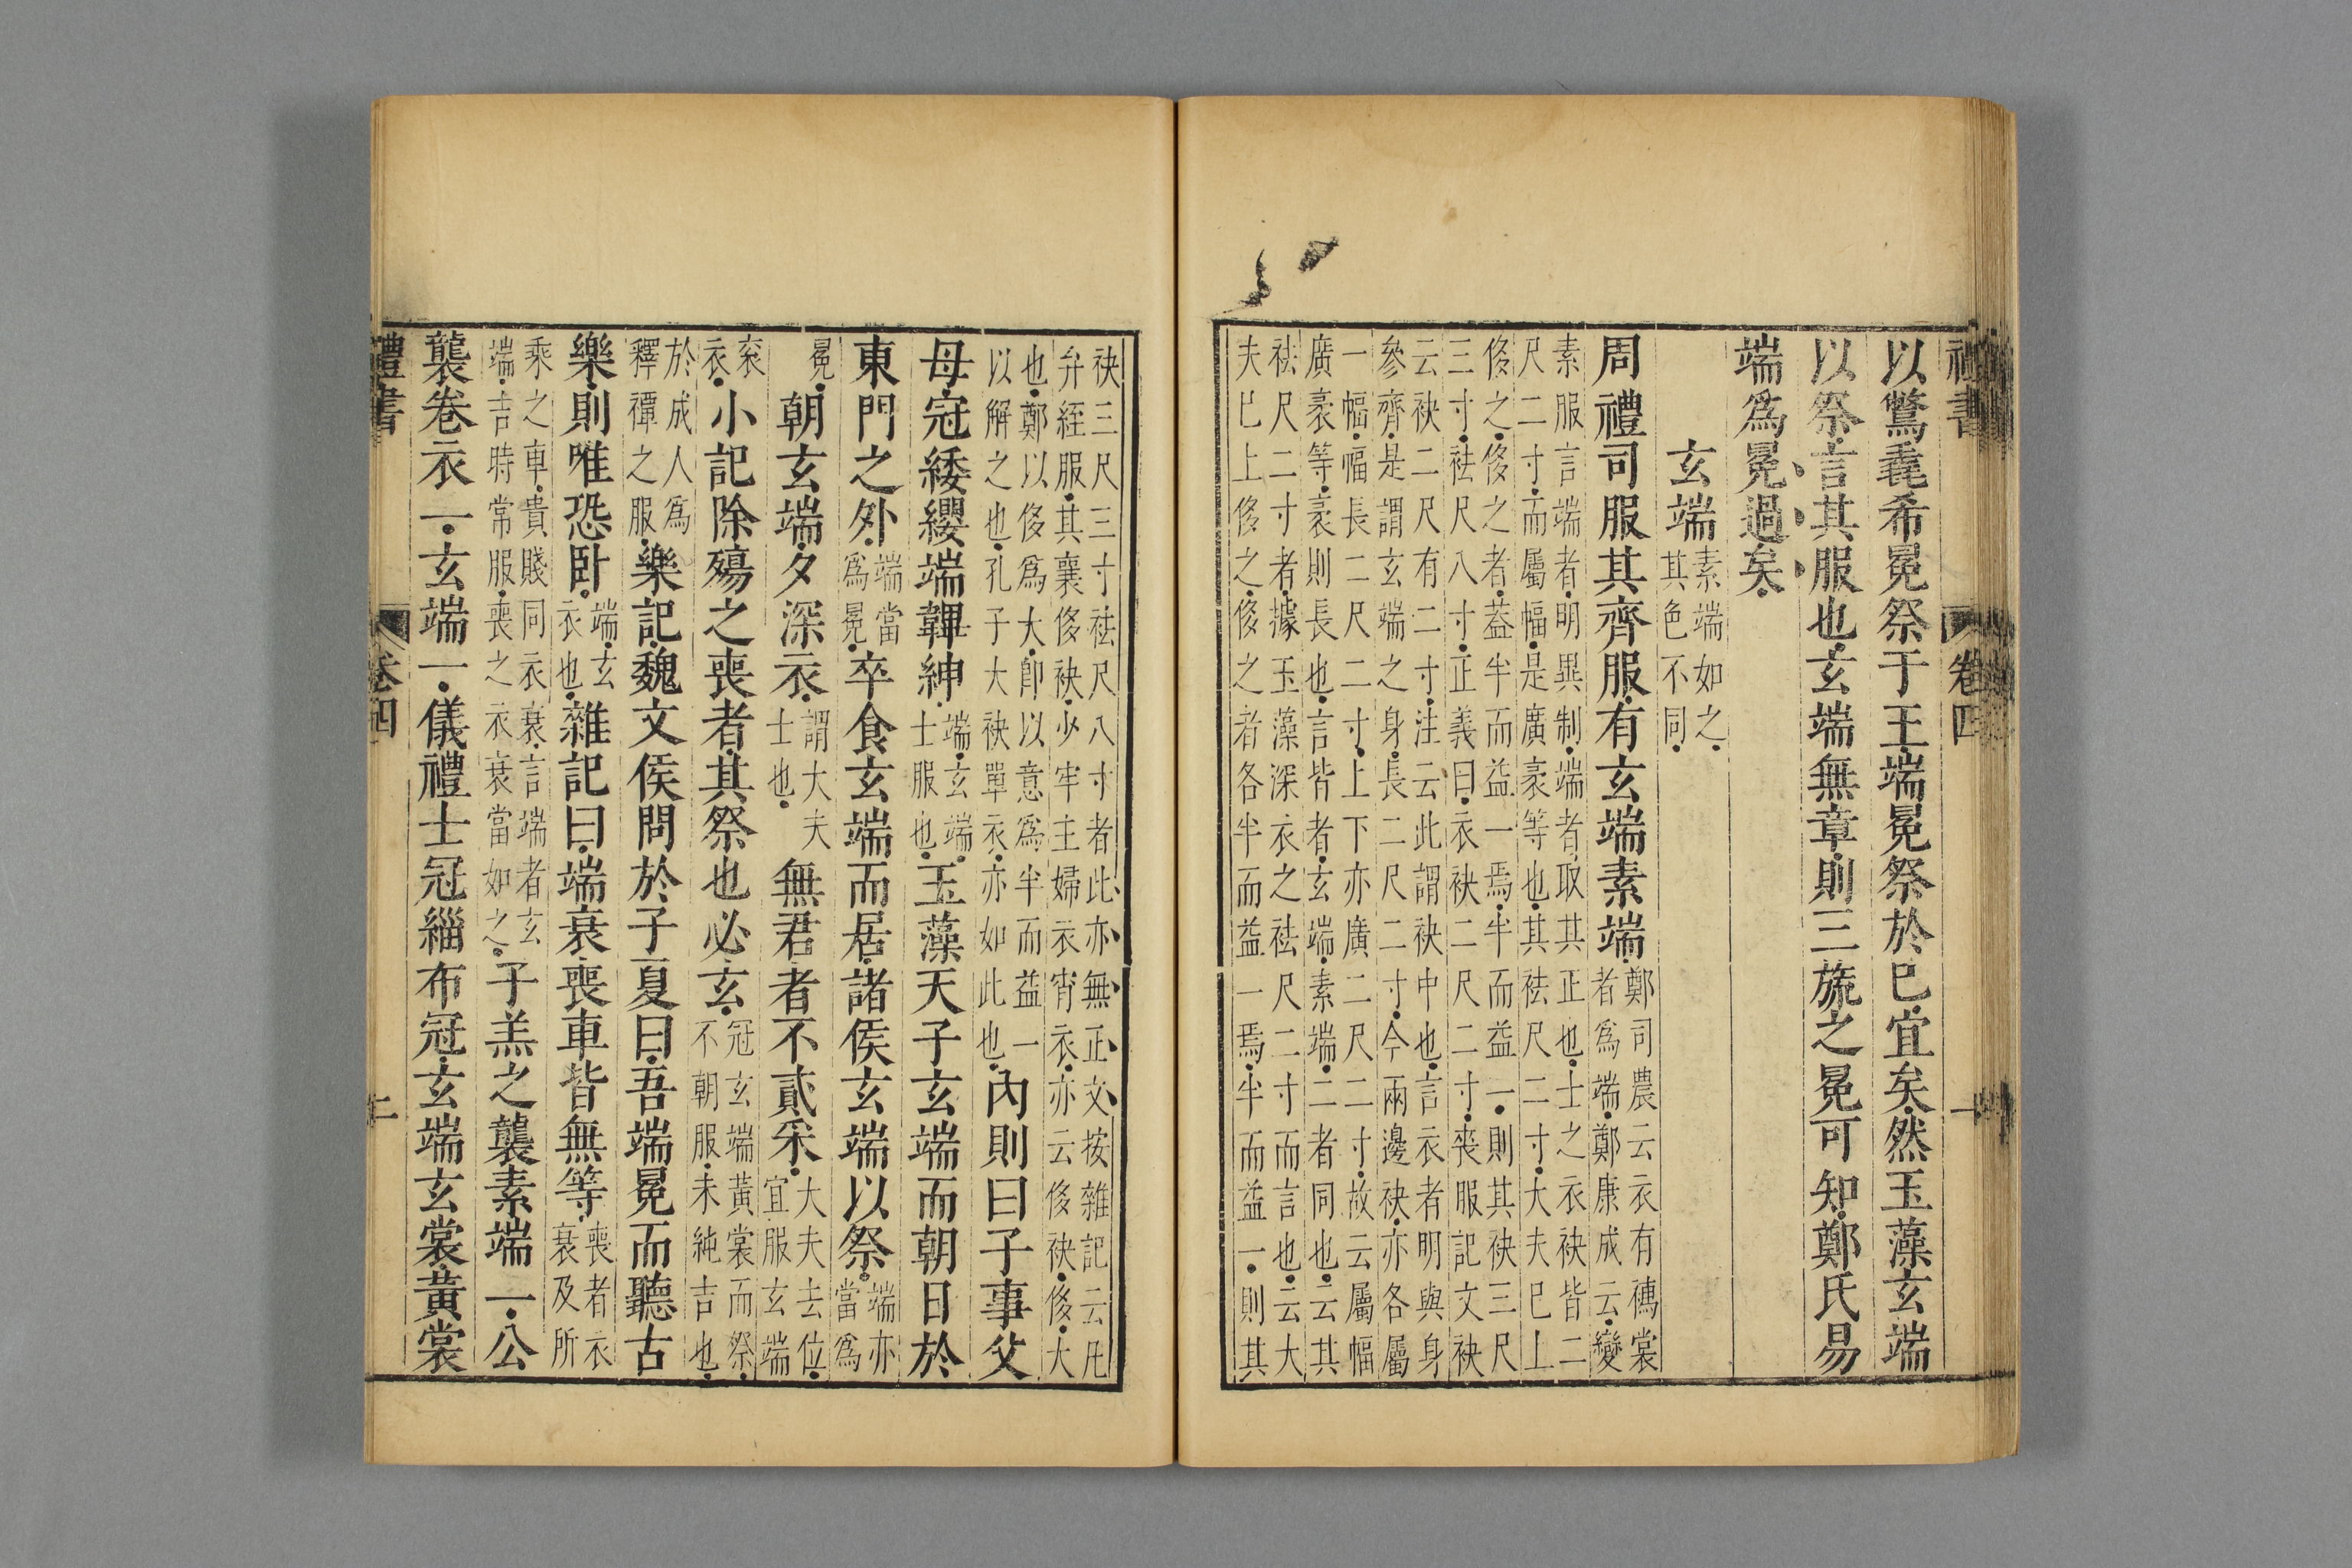 禮書 卷四 一
以鷩毳希冕祭于王端冕祭於巳宜矣然玉藻玄端
以祭言其服也玄端無章則三旒之冕可知鄭氏易
端爲冕過矣
玄端 素端如之
其色不同
周禮司服其齊服有玄端素端 鄭司農云衣有襦裳
者爲端鄭康成云變
素服言端者明異制端者取其正也士之衣袂皆二
尺二寸而屬幅是廣袤等也其袪尺二寸大夫巳上
侈之侈之者蓋半而益一焉半而益一則其袂三尺
三寸袪尺八寸正義曰衣袂二尺二寸喪服記文袂
云袂二尺有二寸注云此謂袂中也言衣者明與身
參齊是謂玄端之身長二尺二寸今兩邊袂亦各屬
一幅幅長二尺二寸上下亦廣二尺二寸故云屬幅
廣袤等袤則長也言皆者玄端素端二者同也云其
袪尺二寸者據玉藻深衣之袪尺二寸而言也云大
夫巳上侈之侈之者各半而益一焉半而益一則其
袂三尺三寸袪尺八寸者此亦無正文按雜記云凡
弁絰服其襄侈袂少牢主婦衣宵衣亦云侈袂侈大
也鄭以侈爲大卽以意爲半而益一
以解之也孔子大袂單衣亦如此也 內則曰子事父
母冠緌纓端韠紳 端玄端
士服也 玉藻天子玄端而朝日於
東門之外 端當
爲冕 卒食玄端而居諸侯玄端以祭 端亦
當爲
冕 朝玄端夕深衣 謂大夫
士也 無君者不貳采 大夫去位
宜服玄端
衮
衣 小記除殤之喪者其祭也必玄 冠玄端黃裳而祭
不朝服未純吉也
於成人爲
釋禫之服 樂記魏文侯問於子夏曰吾端冕而聽古
樂則唯恐臥 端玄
衣也 雜記曰端衰喪車皆無等 喪者衣
衰及所
乘之車貴賤同衣衰言端者玄
端吉時常服喪之衣衰當如之 子羔之襲素端一公
襲卷衣一玄端一儀禮士冠緇布冠玄端玄裳黃裳
禮書 卷四 二